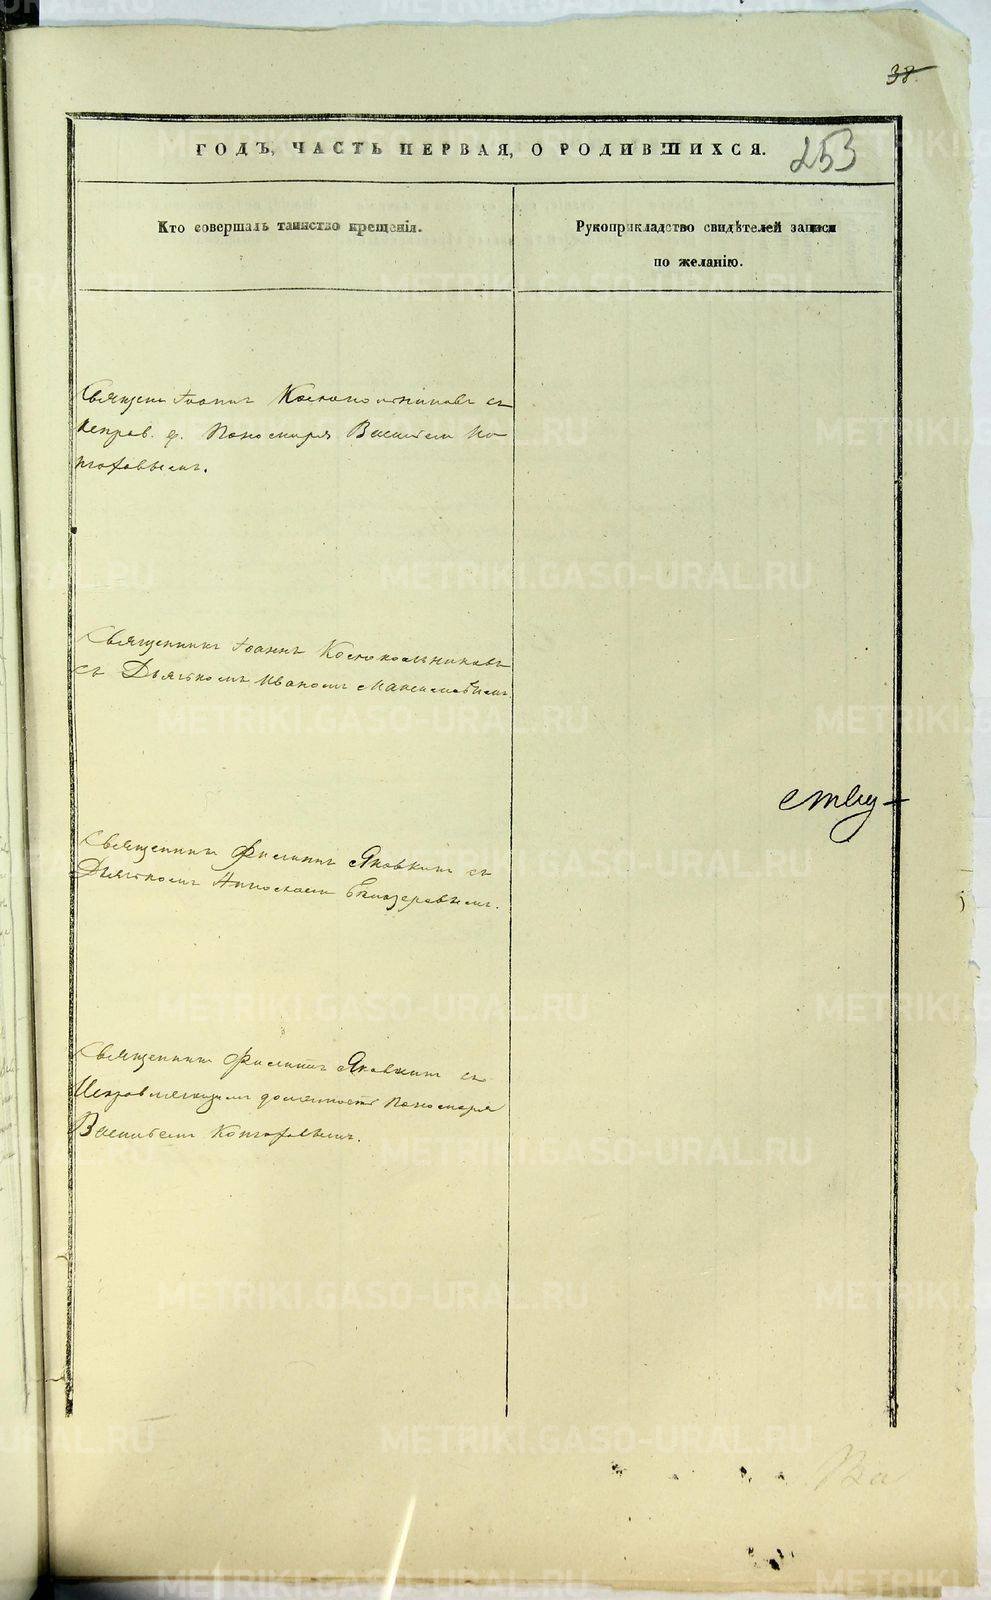 38.
ГОДЪ, ЧАСТЬ ПЕРВАЯ, О РОДИВШИХСЯ.
253
Кто совершалъ таинство крещенія.
Рукоприкладство свидѣтелей записи
по желанію.
Священ Іоаннъ съ
Исправ. д. Пономаря Василіем
Священникъ Іоаннъ
съ Дьячкомъ Иваномъ
ству
Священникъ Филиппъ Яковкинъ съ
Дьячкомъ
Священникъ Филиппъ Яковкинъ съ
Исправляющимъ должность Пономаря
Василіемъ
METRIKI.GASO-URAL.RU